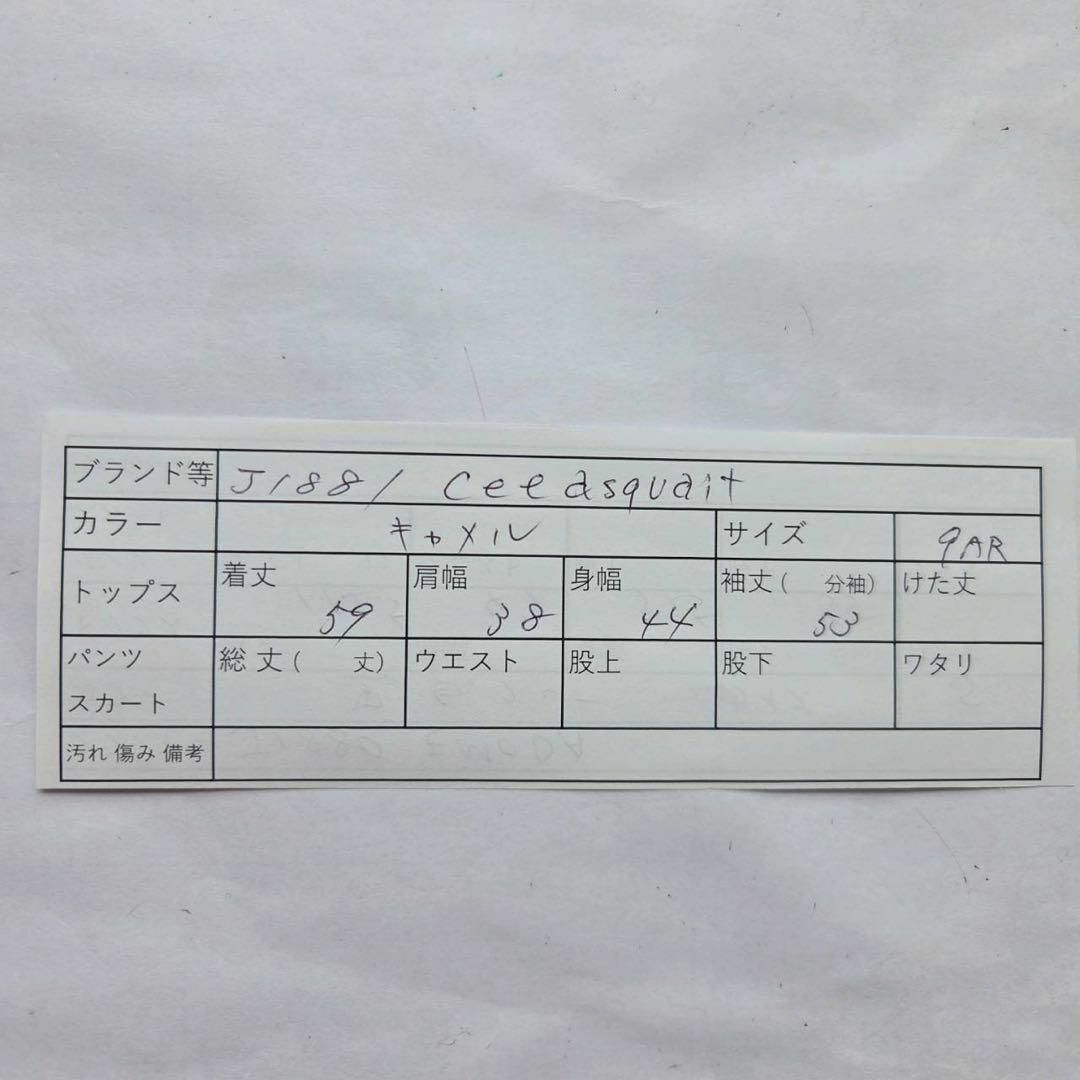 ブランド等 J1881 ceeasquait
カラー キャメル サイズ 9AR
トップス 着丈 59 肩幅 38 身幅 44 袖丈( 分袖) 53 けた丈
パンツ スカート 総丈( 丈) ウエスト 股上 股下 ワタリ
汚れ 傷み 備考